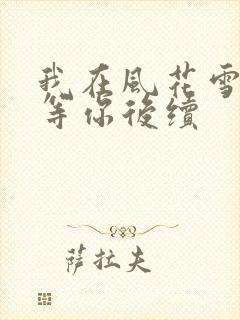 我在風花雪
等你後續
薩拉夫